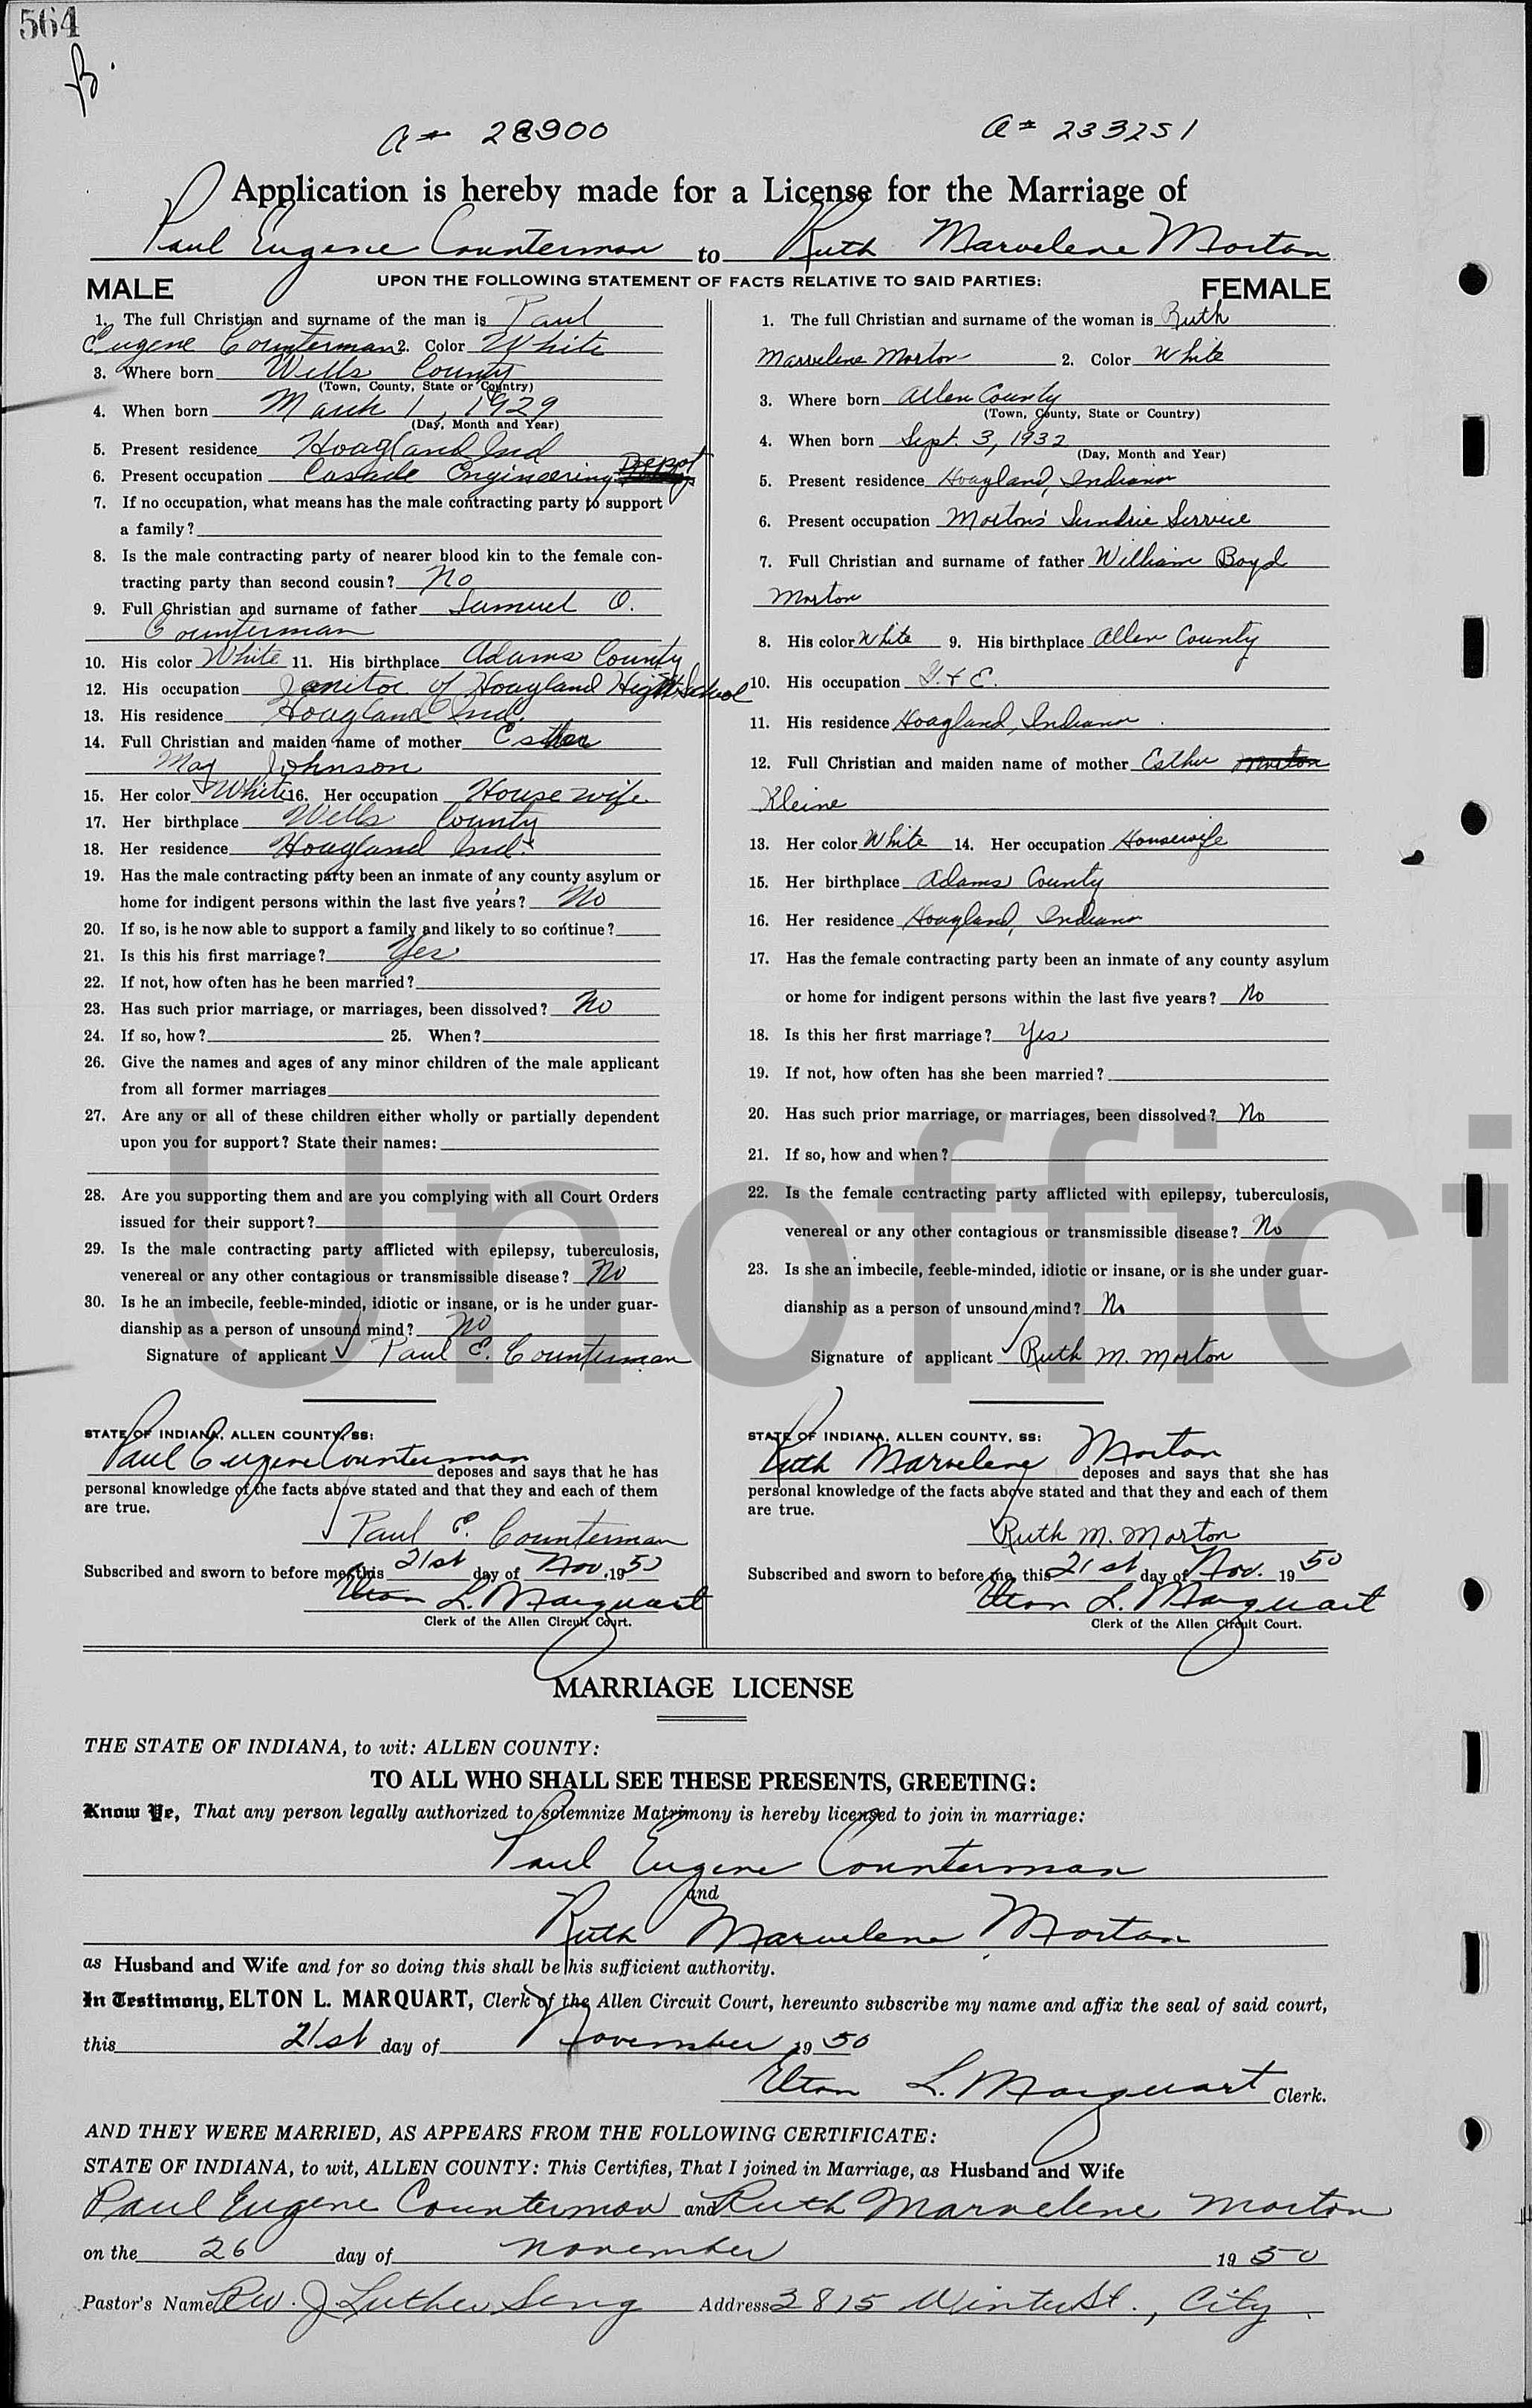 564
B.
a# 28900
a# 233251
Application is hereby made for a License for the Marriage of
Paul Eugene Counterman to Ruth Marvelene Morton
UPON THE FOLLOWING STATEMENT OF FACTS RELATIVE TO SAID PARTIES:
MALE
1. The full Christian and surname of the man is Paul
Eugene Counterman 2. Color White
3. Where born Wells County
(Town, County, State or Country)
4. When born March 1, 1929
(Day, Month and Year)
5. Present residence Hoagland Ind
6. Present occupation Casade Engineering Depot
7. If no occupation, what means has the male contracting party to support
a family?
8. Is the male contracting party of nearer blood kin to the female con-
tracting party than second cousin? No
9. Full Christian and surname of father Samuel O.
Counterman
10. His color White 11. His birthplace Adams County
12. His occupation Janitor of Hoagland High School
13. His residence Hoagland Ind.
14. Full Christian and maiden name of mother Esther
May Johnson
15. Her color White 16. Her occupation House wife
17. Her birthplace Wells County
18. Her residence Hoagland Ind.
19. Has the male contracting party been an inmate of any county asylum or
home for indigent persons within the last five years? No
20. If so, is he now able to support a family and likely to so continue?
21. Is this his first marriage? Yes
22. If not, how often has he been married?
23. Has such prior marriage, or marriages, been dissolved? No
24. If so, how? 25. When?
26. Give the names and ages of any minor children of the male applicant
from all former marriages
27. Are any or all of these children either wholly or partially dependent
upon you for support? State their names:
28. Are you supporting them and are you complying with all Court Orders
issued for their support?
29. Is the male contracting party afflicted with epilepsy, tuberculosis,
venereal or any other contagious or transmissible disease? No
30. Is he an imbecile, feeble-minded, idiotic or insane, or is he under guar-
dianship as a person of unsound mind? No
Signature of applicant Paul E. Counterman
STATE OF INDIANA, ALLEN COUNTY, SS:
Paul Eugene Counterman deposes and says that he has
personal knowledge of the facts above stated and that they and each of them
are true.
Paul E. Counterman
Subscribed and sworn to before me, this 21st day of Nov. 1950
Elton L. Marquart
Clerk of the Allen Circuit Court.
FEMALE
1. The full Christian and surname of the woman is Ruth
Marvelene Morton 2. Color White
3. Where born Allen County
(Town, County, State or Country)
4. When born Sept. 3, 1932
(Day, Month and Year)
5. Present residence Hoagland, Indiana
6. Present occupation Morton's Sundrie Service
7. Full Christian and surname of father William Boyd
Morton
8. His color White 9. His birthplace Allen County
10. His occupation
11. His residence Hoagland, Indiana
12. Full Christian and maiden name of mother Esther Morton
Kleine
13. Her color White 14. Her occupation Housewife
15. Her birthplace Adams County
16. Her residence Hoagland, Indiana
17. Has the female contracting party been an inmate of any county asylum
or home for indigent persons within the last five years? No
18. Is this her first marriage? Yes
19. If not, how often has she been married?
20. Has such prior marriage, or marriages, been dissolved? No
21. If so, how and when?
22. Is the female contracting party afflicted with epilepsy, tuberculosis,
venereal or any other contagious or transmissible disease? No
23. Is she an imbecile, feeble-minded, idiotic or insane, or is she under guar-
dianship as a person of unsound mind? No
Signature of applicant Ruth M. Morton
STATE OF INDIANA, ALLEN COUNTY, SS:
Ruth Marvelene Morton deposes and says that she has
personal knowledge of the facts above stated and that they and each of them
are true.
Ruth M. Morton
Subscribed and sworn to before me, this 21st day of Nov. 1950
Elton L. Marquart
Clerk of the Allen Circuit Court.
Unoffici
MARRIAGE LICENSE
THE STATE OF INDIANA, to wit: ALLEN COUNTY:
TO ALL WHO SHALL SEE THESE PRESENTS, GREETING:
Know Ye, That any person legally authorized to solemnize Matrimony is hereby licensed to join in marriage:
Paul Eugene Counterman
and
Ruth Marvelene Morton
as Husband and Wife and for so doing this shall be his sufficient authority.
In Testimony, ELTON L. MARQUART, Clerk of the Allen Circuit Court, hereunto subscribe my name and affix the seal of said court,
this 21st day of November 1950
Elton L. Marquart Clerk.
AND THEY WERE MARRIED, AS APPEARS FROM THE FOLLOWING CERTIFICATE:
STATE OF INDIANA, to wit, ALLEN COUNTY: This Certifies, That I joined in Marriage, as Husband and Wife
Paul Eugene Counterman and Ruth Marvelene Morton
on the 26 day of November 1950
Pastor's Name Rev. J Luther Seng Address 3815 Winter St., City